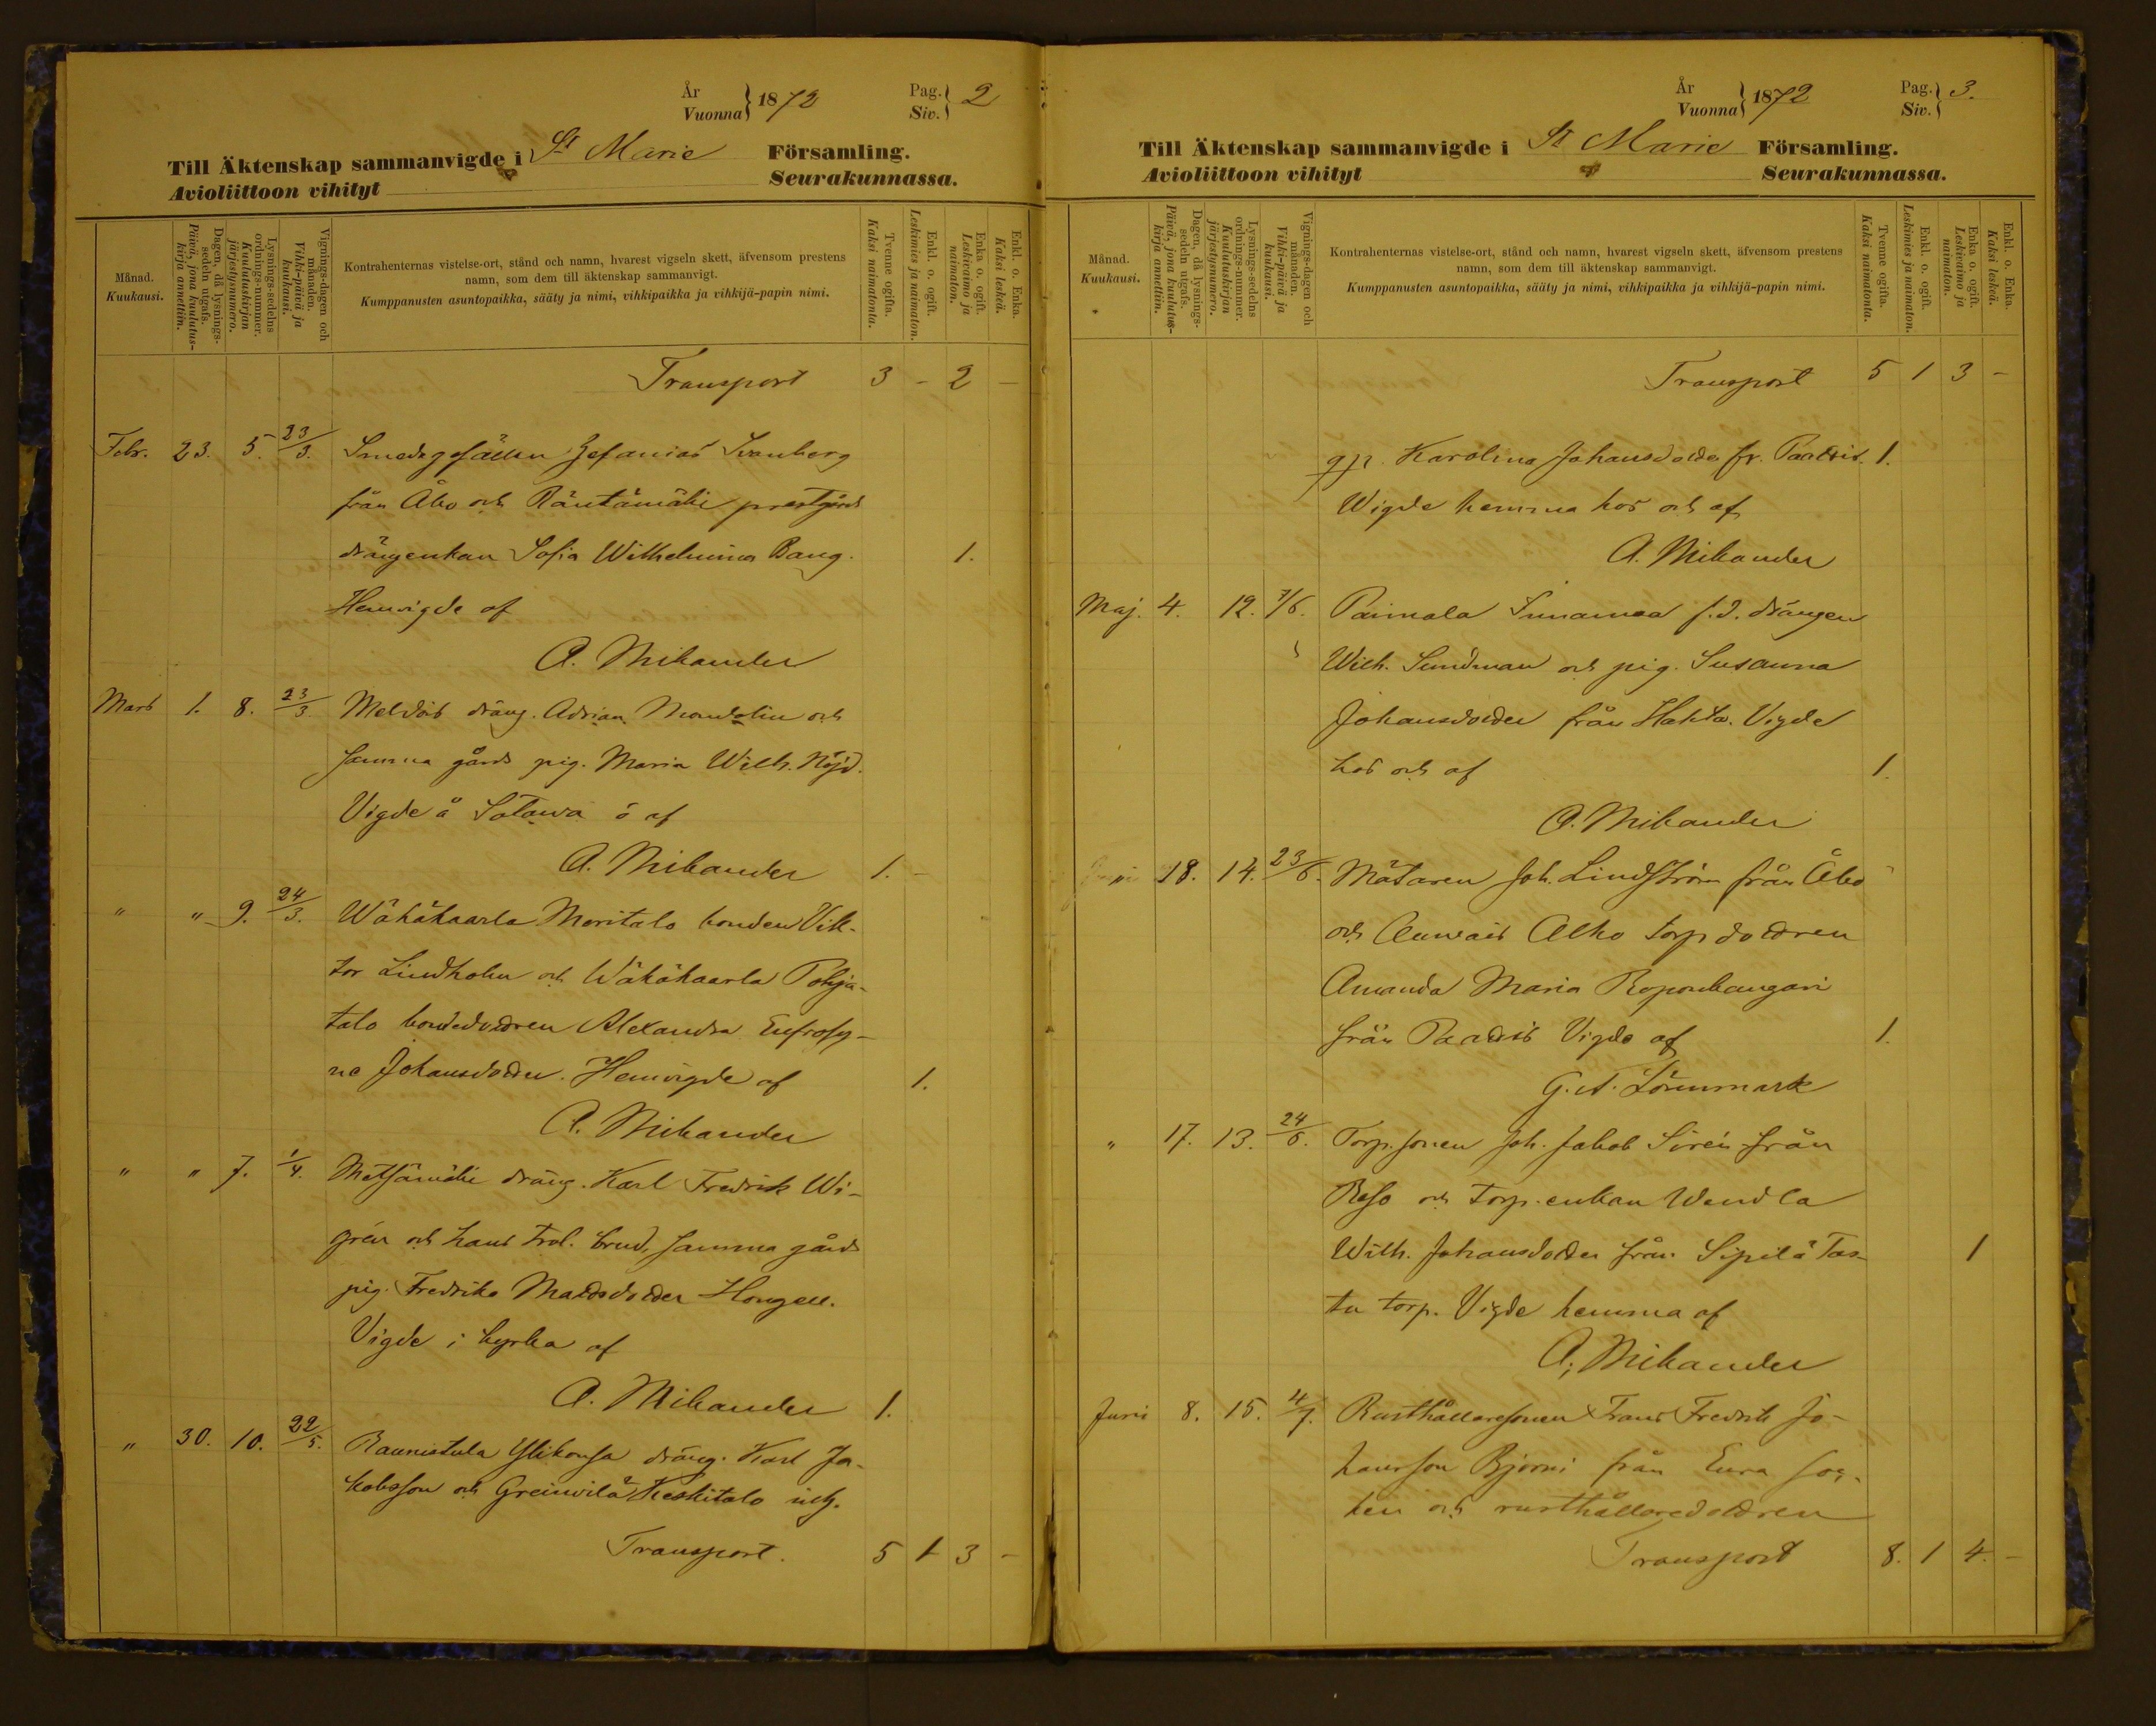 År
Vuonna } 1872
Pag.
Siv. } 2
Till Äktenskap sammanvigde i St Marie Församling.
Avioliittoon vihityt Seurakunnassa.
Månad.
Kuukausi.
Dagen, då lysnings-
sedeln utgafs.
Päivä, jona kuulutus-
kirja annettiin.
Lysnings-sedelns
ordnings-nummer.
Kuulutuskirjan
järjestysnumero.
Vignings-dagen och
månaden.
Vihki-päivä ja
kuukausi.
Kontrahenternas vistelse-ort, stånd och namn, hvarest vigseln skett, äfvensom prestens
namn, som dem till äktenskap sammanvigt.
Kumppanusten asuntopaikka, sääty ja nimi, vihkipaikka ja vihkijä-papin nimi.
Tvenne ogifta.
Kaksi naimatonta.
Enkl. o. ogift.
Leskimies ja naimaton.
Enka o. ogift.
Leskivaimo ja
naimaton.
Enkl. o. Enka.
Kaksi leskeä.
Transport 3 - 2 -
Febr. 23. 5. 23/3. Smedsgesällen Zefanias Svanberg
från Åbo och Räntämäki prestgårds
drängenkan Sofia Wilhelmina Bang. 1.
Hemvigde af
A. Mikander
Mars 1. 8. 23/3. Meldois dräng. Adrian Mandolin och
samma gårds pig. Maria Wilh. Nöjd.
Vigde å Satawa ö af
A. Mikander 1. -
" " 9. 24/3. Wähäkaarla Moritalo bonden Vik-
tor Lindholm och Wähäkaarla Pohja-
talo bondedottren Alexandra Eufrosy-
ne Johansdotter. Hemvigde af 1.
A. Mikander
" " 7. 1/4. Metsämäki dräng. Karl Fredrik Wi-
grén och hans trol. brud, samma gårds
pig. Fredrika Mattsdotter Hongell.
Vigde i kyrka af
A. Mikander 1.
" 30. 10. 22/5. Raunistula Ylikonsa dräng. Karl Ja-
kobsson och Greinvilä Keskitalo inh.
Transport. 5 1 3 -
År
Vuonna } 1872
Pag.
Siv. } 3.
Till Äktenskap sammanvigde i St Marie Församling.
Avioliittoon vihityt Seurakunnassa.
Månad.
Kuukausi.
Dagen, då lysnings-
sedeln utgafs.
Päivä, jona kuulutus-
kirja annettiin.
Lysnings-sedelns
ordnings-nummer.
Kuulutuskirjan
järjestysnumero.
Vignings-dagen och
månaden.
Vihki-päivä ja
kuukausi.
Kontrahenternas vistelse-ort, stånd och namn, hvarest vigseln skett, äfvensom prestens
namn, som dem till äktenskap sammanvigt.
Kumppanusten asuntopaikka, sääty ja nimi, vihkipaikka ja vihkijä-papin nimi.
Tvenne ogifta.
Kaksi naimatonta.
Enkl. o. ogift.
Leskimies ja naimaton.
Enka o. ogift.
Leskivaimo ja
naimaton.
Enkl. o. Enka.
Kaksi leskeä.
Transport 5 1 3 -
Karolina Johansdotter fr. Paattis. 1.
Wigde hemma hos och af
A. Mikander
Maj. 4. 12. 7/6. Paimala f.d. drängen
Wilh. Sundman och pig. Susanna
Johansdotter från Hakta. Vigde
hos och af 1.
A. Mikander
" 18. 14. 23/6. Mätaren Joh. Lindström från Åbo
och Auvais Alho torpdottren
Amanda Maria Roponkangari
från Paattis Vigde af 1.
G. A. Lörnmark
" 17. 13. 24/6. Torp.sonen Joh. Jakob Sirén från
Reso och torp.enkan Wendla
Wilh. Johansdotter från Sipilä Tas- 1
ta torp. Vigde hemma af
A. Mikander
Juni 8. 15. 4/7. Rusthållaresonen Frans Fredrik Jo-
hansson Björni från Eura soc-
ken och rusthållaredottren
Transport 8. 1 4. -